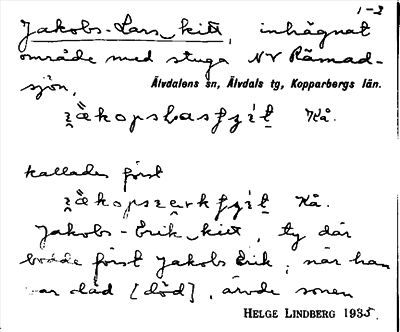 1-2
Jakobs-Lars kitt, inhägnat
område med stuga NV Rämad-
sjön.
Älvdalens sn, Älvdals tg, Kopparbergs län.
Kå.
kallades först
Kå.
Jakobs-Erik kitt, ty där
bodde först Jakobs Erik; när han
var dåd [död], ärvde sonen
HELGE LINDBERG 1935.